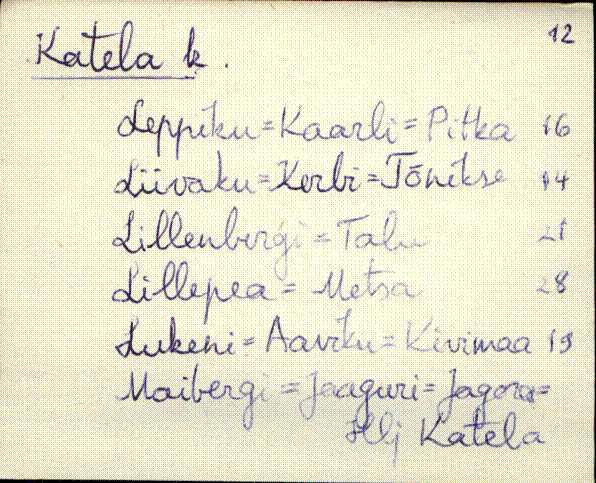 12
Katela k.
Leppiku=Kaarli=Pitka 16
Liivaku=Kerbi=Tõnikse 14
Lillenbergi=Talu 21
Lillepea=Metsa 28
Lukeni=Aaviku=Kivimaa 19
Maibergi=Jaaguri=Jagora=
Katela